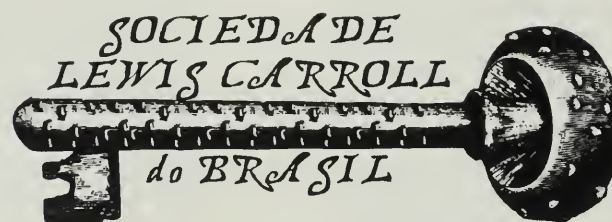 SOCIEDADE
LEWIS CARROLL
do BRASIL